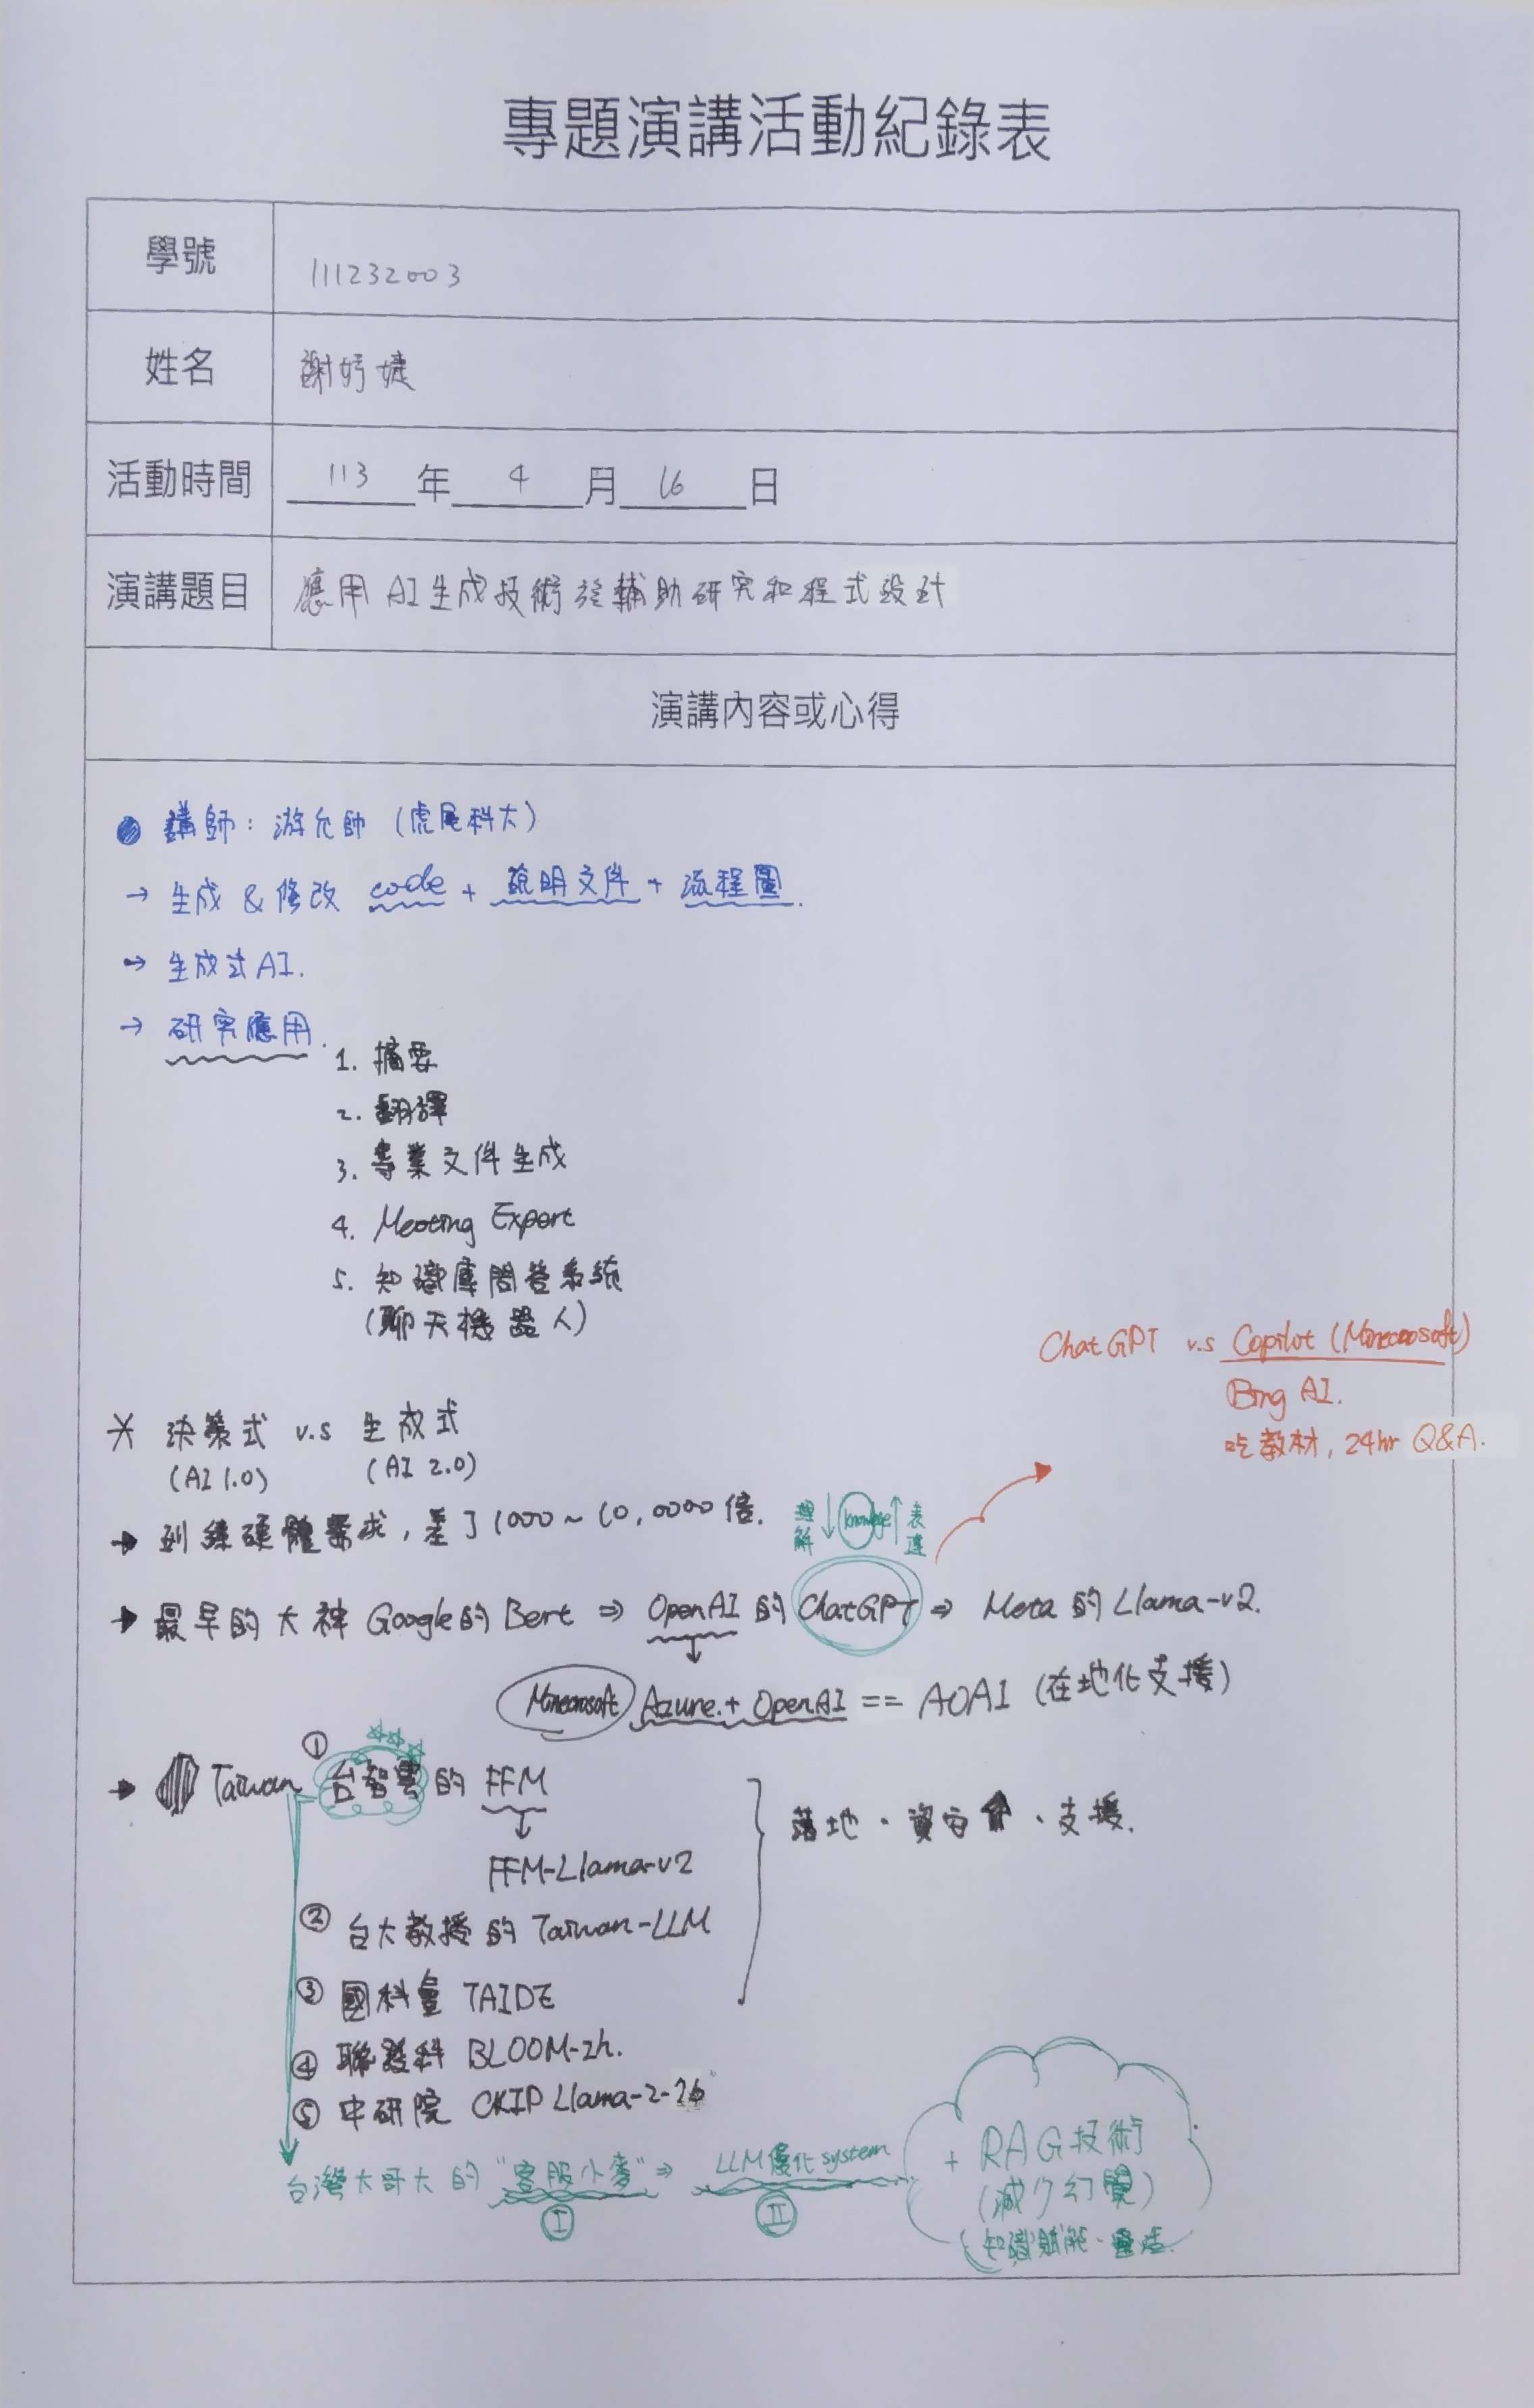 專題演講活動紀錄表
學號 111232003
姓名 謝妤婕
活動時間 113 年 4 月 16 日
演講題目 應用AI生成技術於輔助研究和程式設計
演講內容或心得
講師：游允帥（虎尾科大）
→ 生成 & 修改 code + 說明文件 + 流程圖.
→ 生成式AI.
→ 研究應用.
1. 摘要
2. 翻譯
3. 專業文件生成
4. Meeting Expert
5. 知識庫問答系統
(聊天機器人)
ChatGPT v.s Copilot (Minecrosoft)
Bing AI.
吃教材, 24hr Q&A.
決策式 v.s 生成式
(AI 1.0) (AI 2.0)
→ 訓練硬體需求, 差了1000~10,0000倍.
理解 ↓ knowledge ↑ 表達
→ 最早的大神 Google的Bert ⇒ OpenAI的ChatGPT ⇒ Meta的Llama-v2.
Minecrosoft Azure + OpenAI == AOAI (在地化支援)
→ Taiwan ① 台智雲的 FFM
↓
FFM-Llama-v2
落地、資安↑、支援.
② 台大教授的 Taiwan-LLM
③ 國科會 TAIDE
④ 聯發科 BLOOM-zh.
⑤ 中研院 CKIP Llama-2-7b
台灣大哥大的 "客服小麥" ⇒ LLM優化system
Ⅰ Ⅱ
+ RAG技術
(減少幻覺)
知識賦能、靈活.